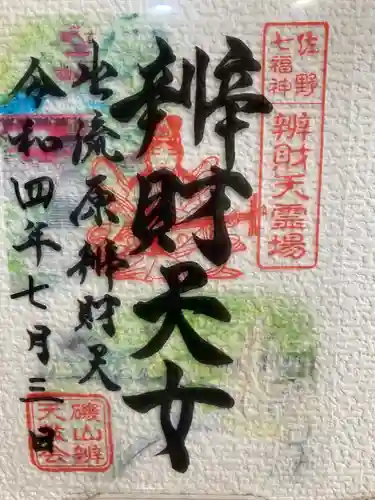 佐野
七福神
辨財天霊場
辨財天女
出流原辨財天
令和四年七月三日
磯山辨
天